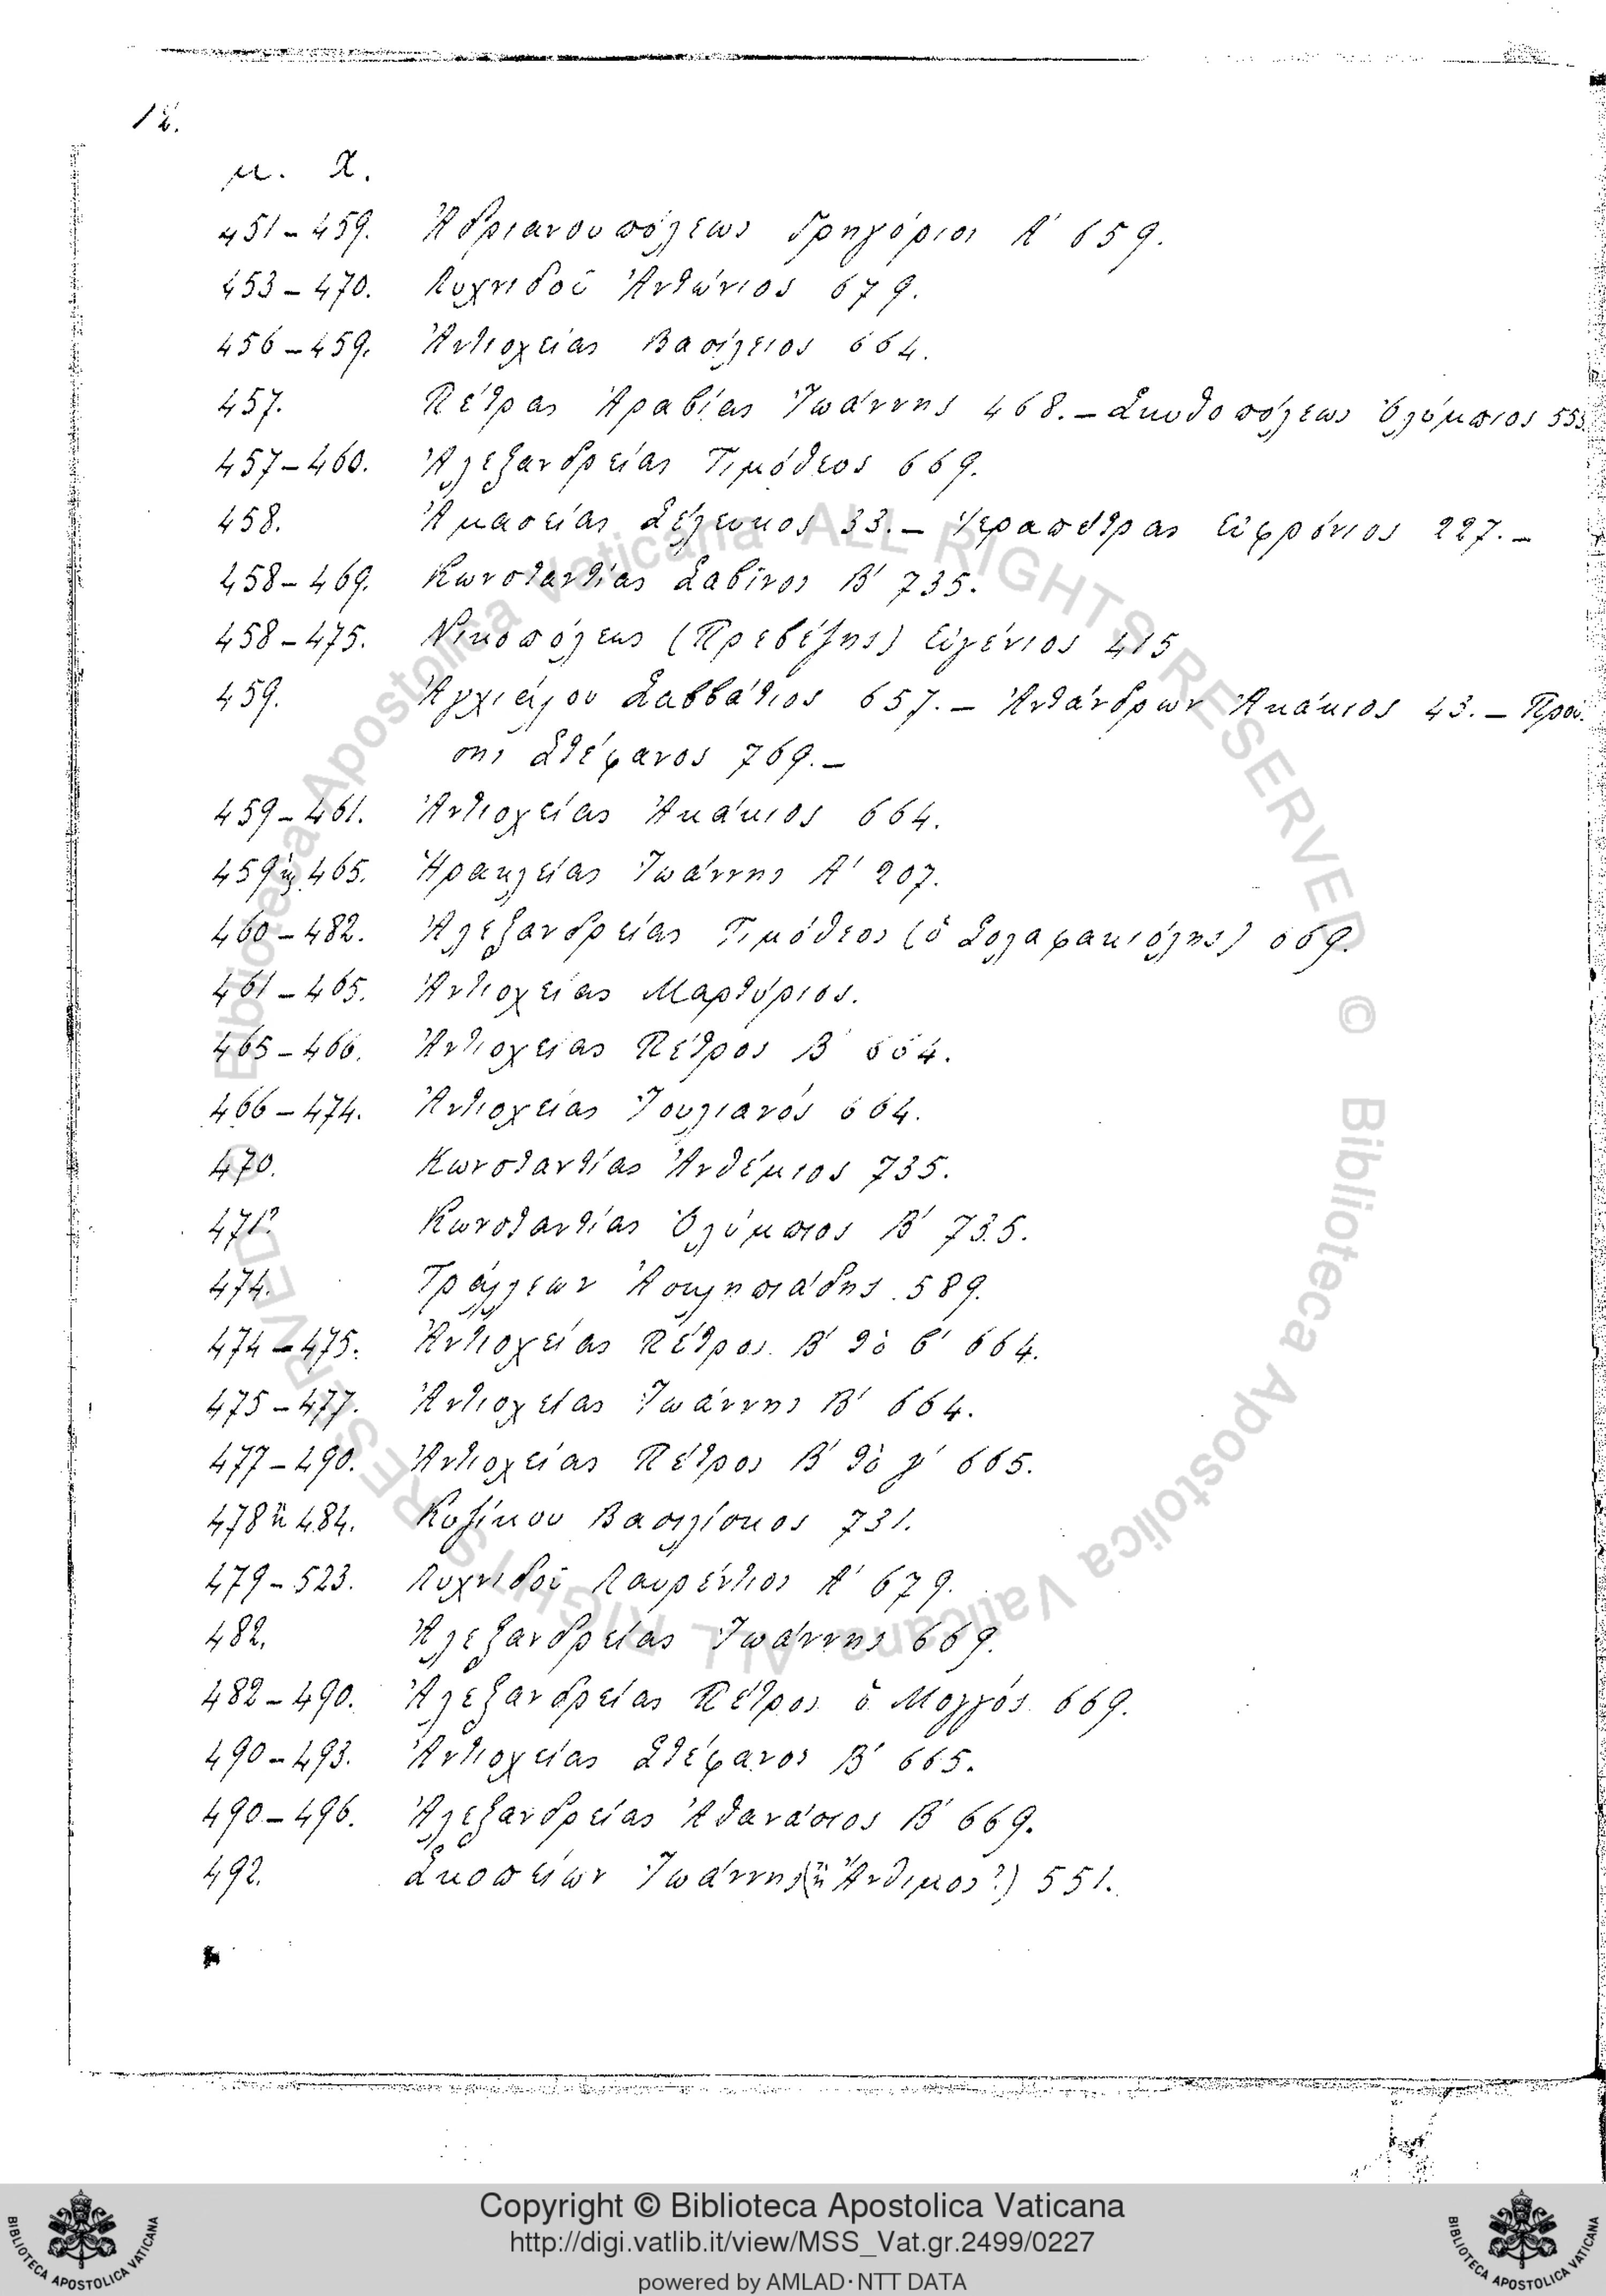 12.
μ. Χ.
451-459. Ἀδριανουπόλεως Γρηγόριος Α' 659.
453-470. Λυχνιδοῦ Ἀντώνιος 679.
456-459. Ἀντιοχείας Βασίλειος 664.
457. Πέτρας Ἀραβίας Ἰωάννης 468.- Σκυθοπόλεως Ὀλύμπιος 555
457-460. Ἀλεξανδρείας Τιμόθεος 669.
458. Ἀμασείας Σέλευκος 33.- Ἱεραπύτρας Εὐφρόνιος 227.-
458-469. Κωνσταντίας Σαβῖνος Β' 735.
458-475. Νικοπόλεως (Πρεβέζης) Εὐγένιος 415
459. Ἀγχιάλου Σαββάτιος 657.- Ἀντάνδρων Ἀκάκιος 43.- Πρού-
σης Στέφανος 769.-
459-461. Ἀντιοχείας Ἀκάκιος 664.
459 465. Ἡρακλείας Ἰωάννης Α' 207.
460-482. Ἀλεξανδρείας Τιμόθεος (ὁ Σολαφακιόλης) 669.
461-465. Ἀντιοχείας Μαρτύριος.
465-466. Ἀντιοχείας Πέτρος Β' 664.
466-474. Ἀντιοχείας Ἰουλιανός 664.
470. Κωνσταντίας Ἀνθέμιος 735.
471? Κωνσταντίας Ὀλύμπιος Β' 735.
474. Τράλλεων Ἀσκληπιάδης 589.
474-475. Ἀντιοχείας Πέτρος Β' τὸ β' 664.
475-477. Ἀντιοχείας Ἰωάννης Β' 664.
477-490. Ἀντιοχείας Πέτρος Β' τὸ γ' 665.
478 ἢ 484. Κυζίκου Βασιλίσκος 731.
479-523. Λυχνιδοῦ Λαυρέντιος Α' 679.
482. Ἀλεξανδρείας Ἰωάννης 669.
482-490. Ἀλεξανδρείας Πέτρος ὁ Μογγός 669.
490-493. Ἀντιοχείας Στέφανος Β' 665.
490-496. Ἀλεξανδρείας Ἀθανάσιος Β' 669.
492. Σκοπείων Ἰωάννης (ἢ Ἄνθιμος?) 551.
Biblioteca Apostolica Vaticana ALL RIGHTS RESERVED © Biblioteca Apostolica Vaticana ALL RIGHTS RESERVED ©
BIBLIOTECA APOSTOLICA VATICANA
Copyright © Biblioteca Apostolica Vaticana
http://digi.vatlib.it/view/MSS_Vat.gr.2499/0227
powered by AMLAD·NTT DATA
BIBLIOTECA APOSTOLICA VATICANA